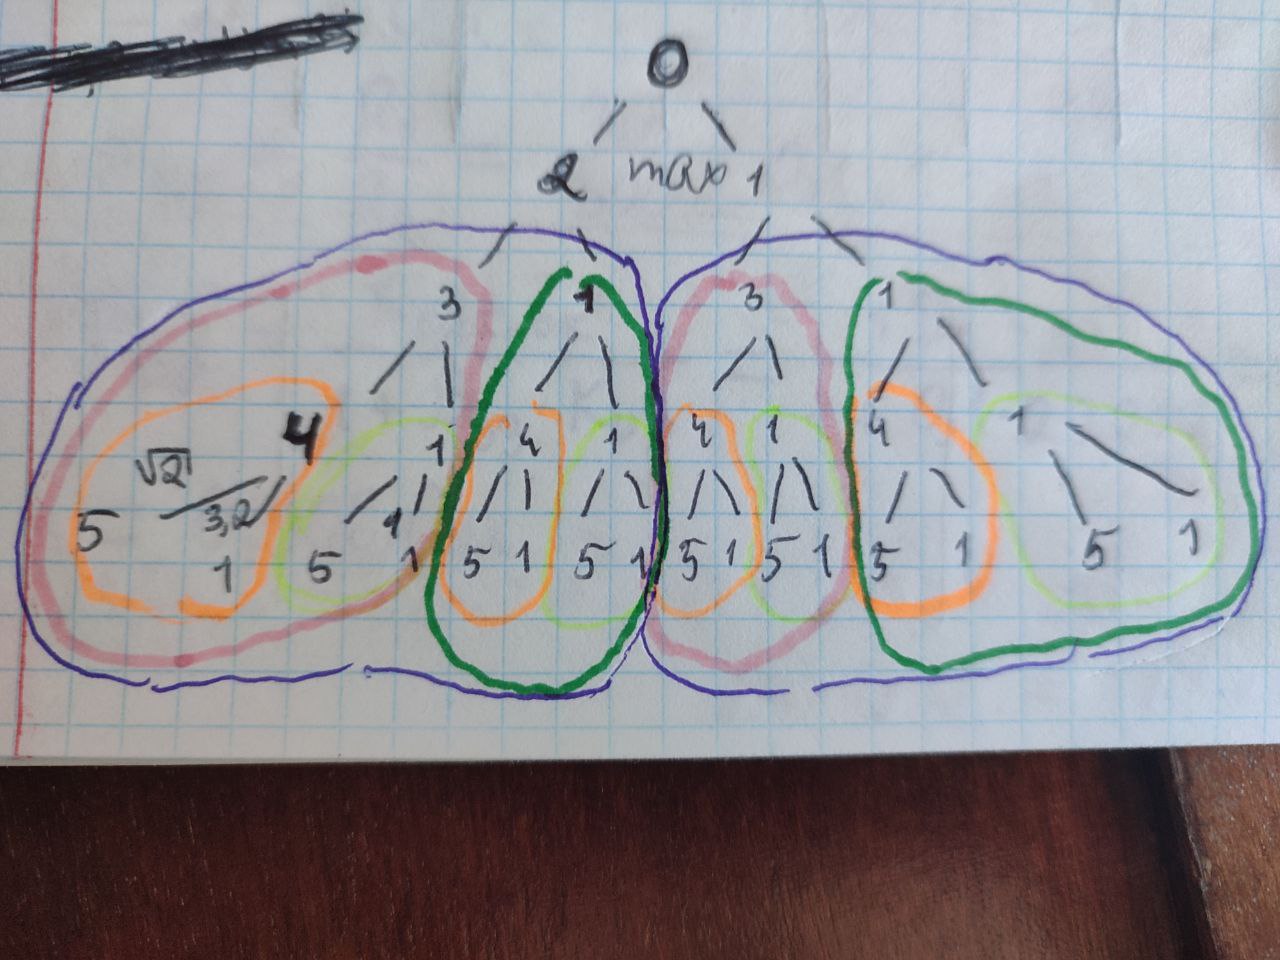 0
2 max 1
3 1 3 1
4 1 4 1 4 1 4 1
√2
3,2 1
5 1 5 1 5 1 5 1 5 1 5 1 5 1 5 1